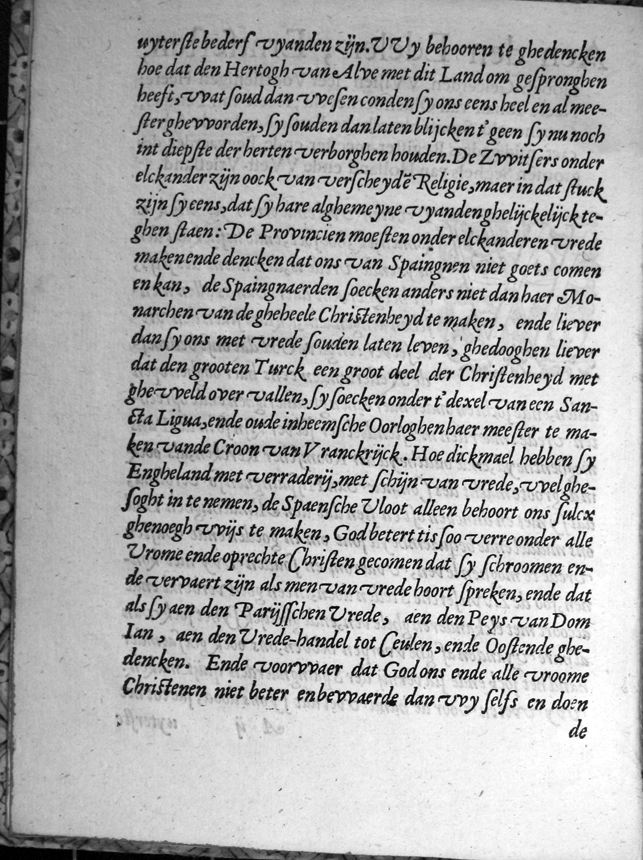 uyterste bederf vyanden zijn. VVy behooren te ghedencken
hoe dat den Hertogh van Alve met dit Land om gespronghen
heeft, vvat soud dan vvesen conden sy ons eens heel en al mee-
ster ghevvorden, sy souden dan laten blijcken t'geen sy nu noch
int diepste der herten verborghen houden. De Zvvitsers onder
elckander zijn oock van verscheydē Religie, maer in dat stuck
zijn sy eens, dat sy hare alghemeyne vyanden ghelijckelijck te-
ghen staen: De Provincien moesten onder elckanderen vrede
maken ende dencken dat ons van Spaingnen niet goets comen
en kan, de Spaingnaerden soecken anders niet dan haer Mo-
narchen van de gheheele Christenheyd te maken, ende liever
dan sy ons met vrede souden laten leven, ghedooghen liever
dat den grooten Turck een groot deel der Christenheyd met
ghevveld over vallen, sy soecken onder t'dexel van een San-
cta Ligua, ende oude inheemsche Oorloghen haer meester te ma-
ken vande Croon van Vranckrijck. Hoe dickmael hebben sy
Engheland met verraderij, met schijn van vrede, vvel ghe-
soght in te nemen, de Spaensche Vloot alleen behoort ons sulcx
ghenoegh vvijs te maken, God betert tis soo verre onder alle
Vrome ende oprechte Christen gecomen dat sy schroomen en-
de vervaert zijn als men van vrede hoort spreken, ende dat
als sy aen den Parijsschen Vrede, aen den Peys van Dom
Ian, aen den Vrede-handel tot Ceulen, ende Oostende ghe-
dencken. Ende voorvvaer dat God ons ende alle vroome
Christenen niet beter en bevvaerde dan vvy selfs en doen
de